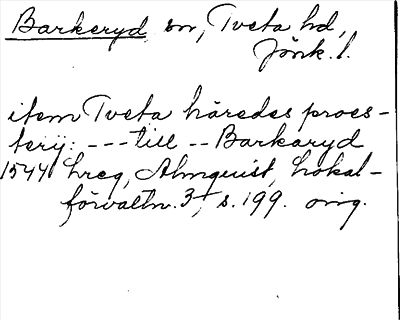 Barkeryd sn, Tveta hd,
Jönk. l.
item Tveta häredes proes-
terij: --- till -- Barkaryd
1544 hreg, Almquist, Lokal-
förvaltn. 3, s. 199. orig.